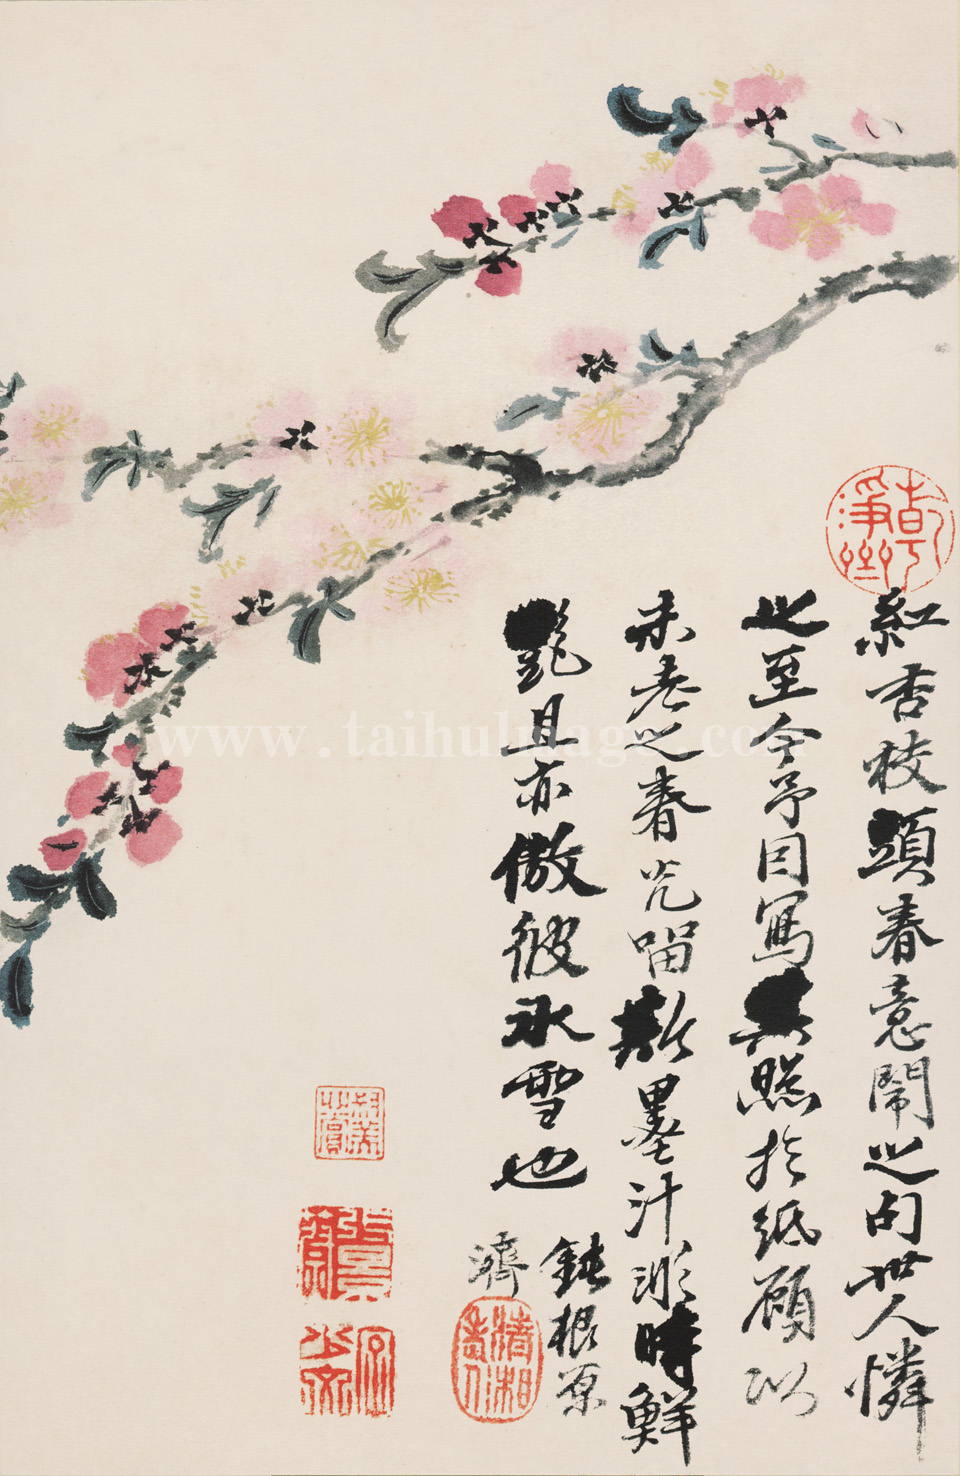 紅杏枝頭春意鬧之句世人憐
之至今予因寫其照於紙顧以
未老之春光斯墨汁時鮮
艷且亦傲彼冰雪也
鈍根原
濟
清湘老人
www.taihuImage.com